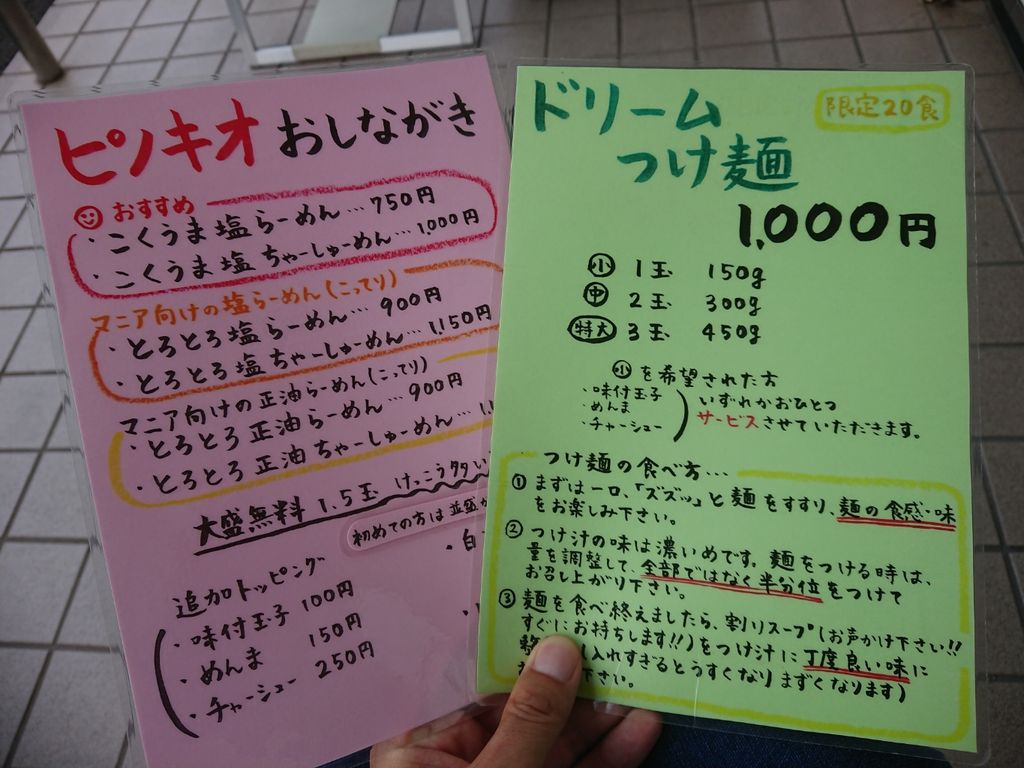 ピノキオ おしながき
おすすめ
・こくうま塩らーめん…750円
・こくうま塩ちゃーしゅーめん…1,000円
マニア向けの塩らーめん(こってり)
・とろとろ塩らーめん…900円
・とろとろ塩ちゃーしゅーめん…1,150円
マニア向けの正油らーめん(こってり)
・とろとろ正油らーめん…900円
・とろとろ正油ちゃーしゅーめん
大盛無料 1.5玉 けっこう多い
初めての方は並盛
追加トッピング
・味付玉子 100円
・めんま 150円
・チャーシュー 250円
ドリーム
つけ麺
限定20食
1,000円
小 1玉 150g
中 2玉 300g
特大 3玉 450g
小を希望された方
・味付玉子
・めんま
・チャーシュー
いずれかおひとつ
サービスさせていただきます。
つけ麺の食べ方…
① まずは一口、「ズズッ」と麺をすすり、麺の食感・味
をお楽しみ下さい。
② つけ汁の味は濃いめです。麺をつける時は、
量を調整して、全部ではなく半分位をつけて
お召し上がり下さい。
③ 麺を食べ終えましたら、割りスープ(お声かけ下さい!!
すぐにお持ちします!!)をつけ汁に丁度良い味に
(入れすぎるとうすくなりまずくなります)
下さい。